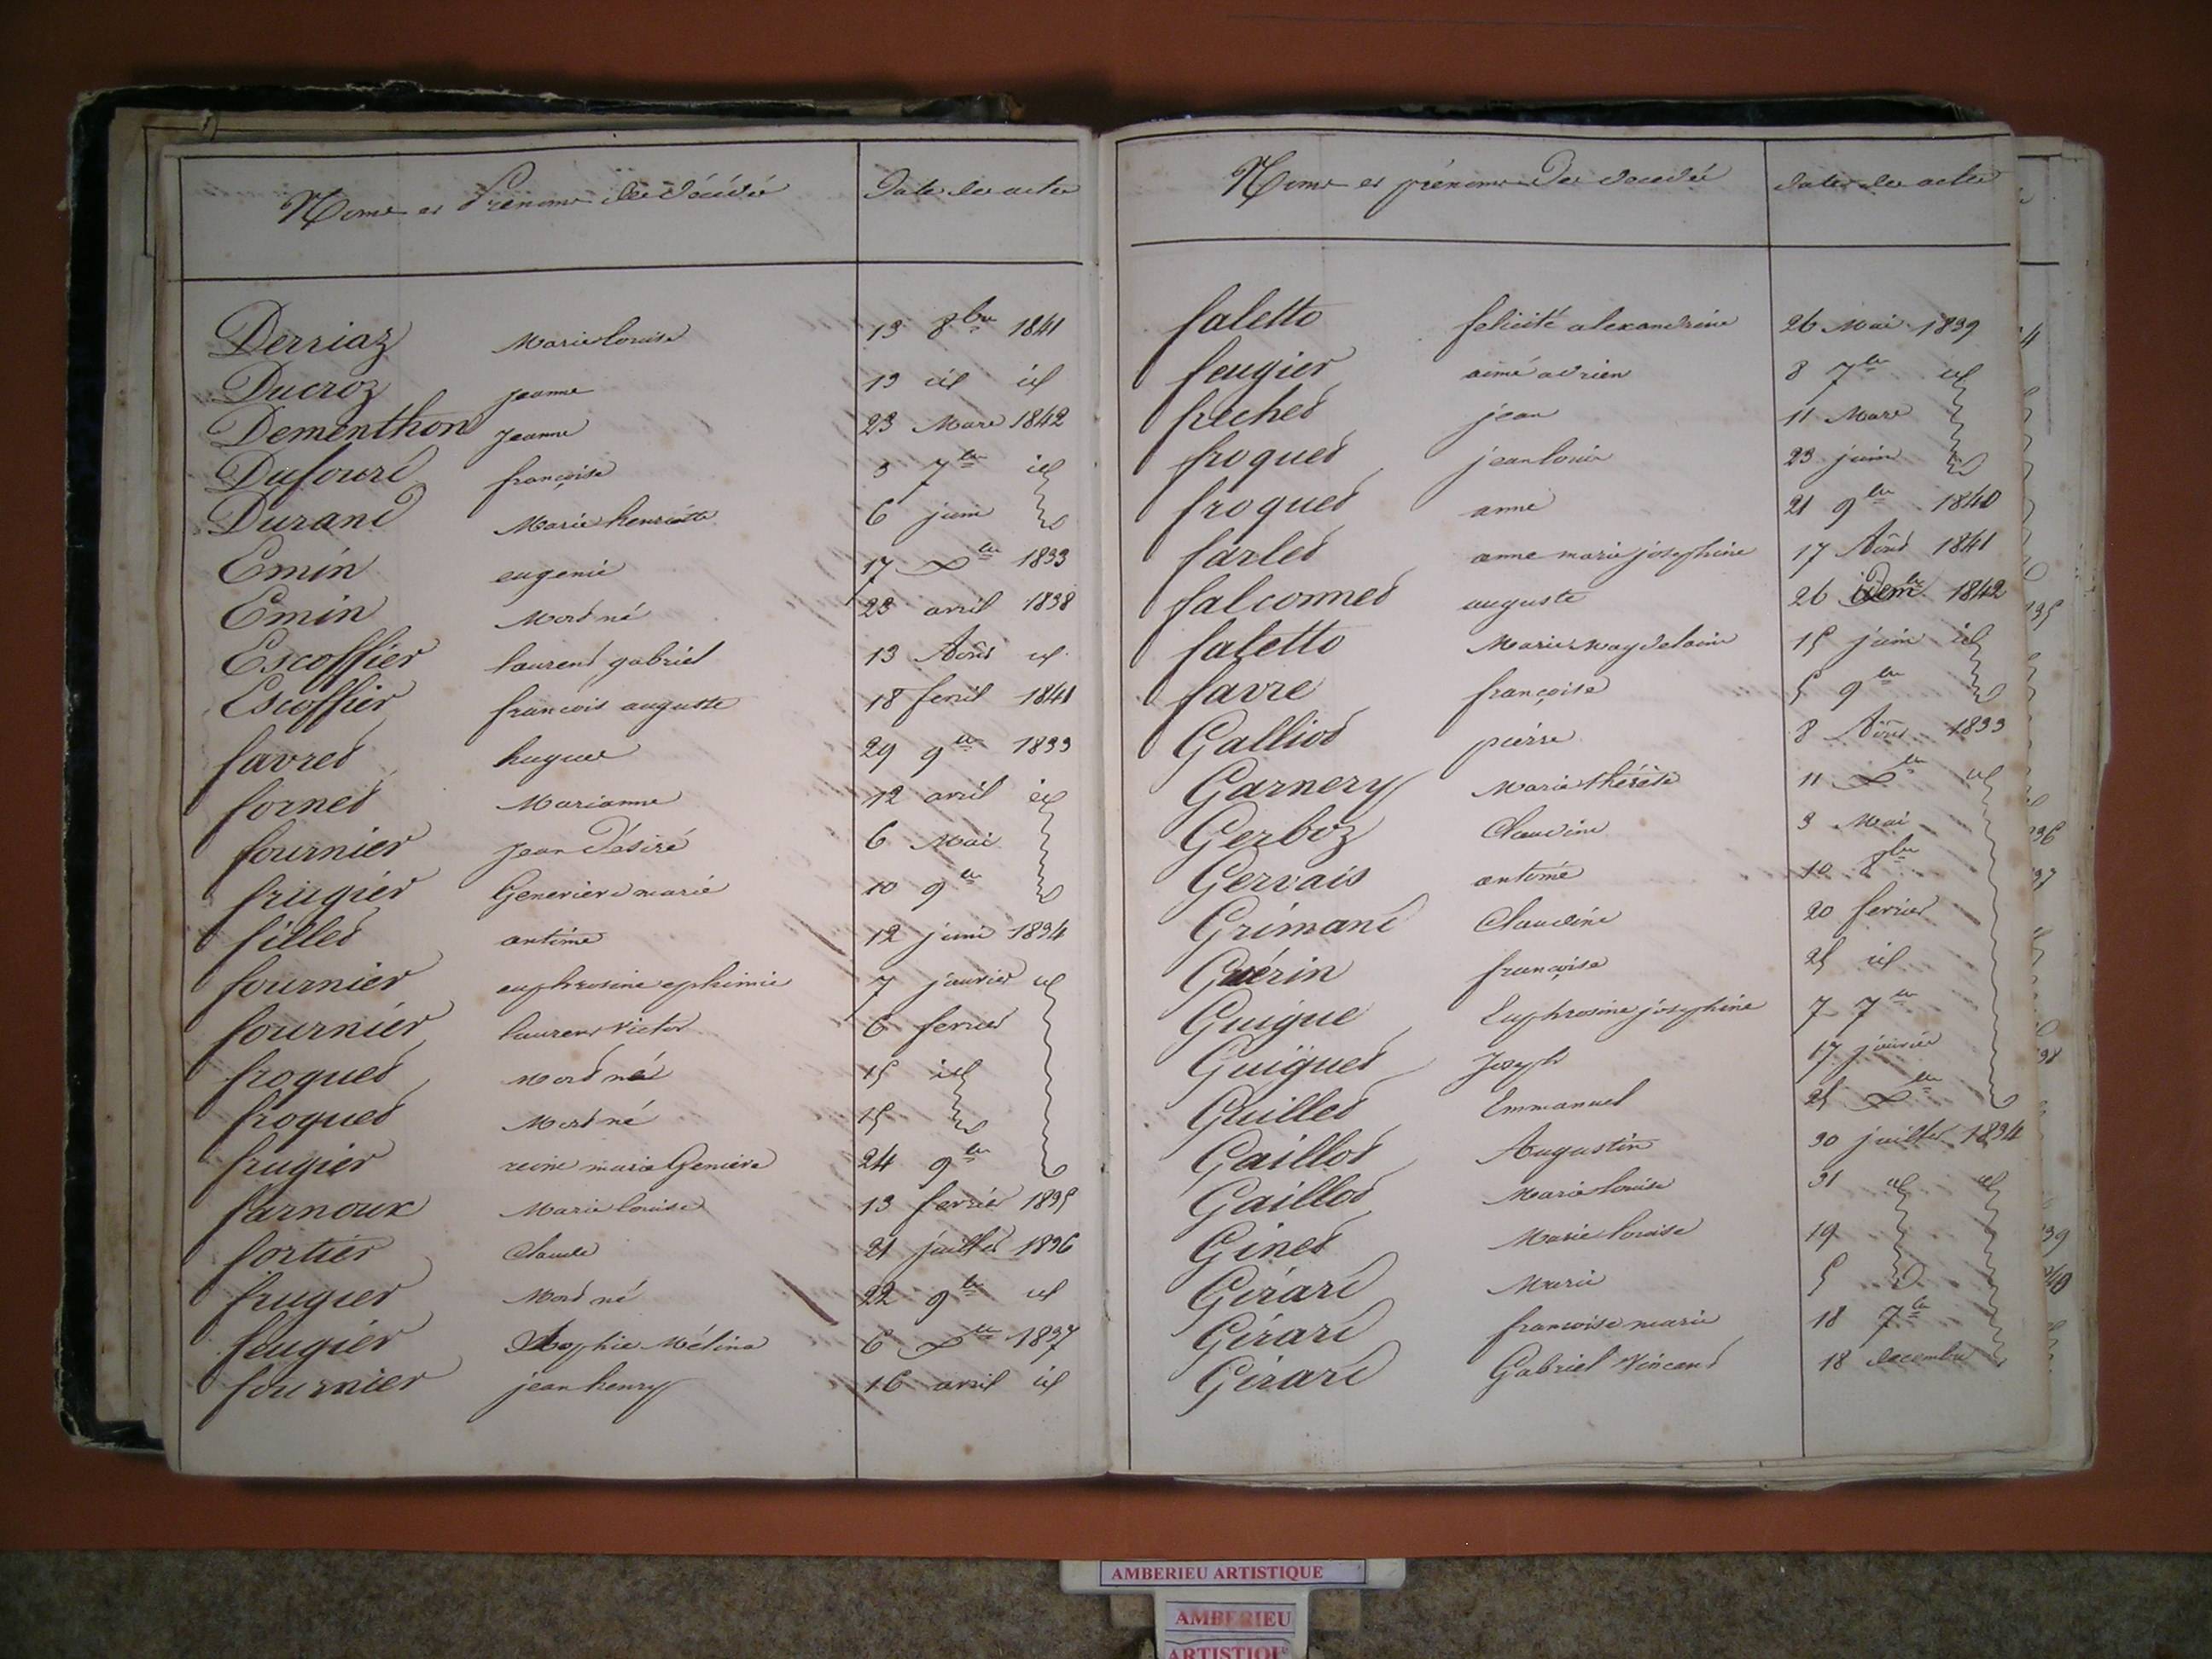 Noms et Prénoms des décédés Date des actes
Derriaz Marie louise 13 8bre 1841
Ducroz jeanne 13 id id
Dementhon Jeanne 23 Mars 1842
Dufourd françoise 3 7bre id
Durand Marie henriette 6 juin
Emin eugenie 17 Xbre 1833
Emin Mort né 23 avril 1838
Escoffier laurent gabriel 13 Août id
Escoffier francois auguste 18 1841
favret hugues 29 9bre 1833
fornet Marianne 12 avril id
fournier Jean Désiré 6 Mai
frugier Genevieve marie 10 9bre
fillet antime 12 juin 1834
fournier euphrosine ephimie 7 janvier id
fournier laurent victor 6 fevrier
froquet Mort né 15 id
froquet Mort né 15
frugier reine marie Genvieve 24 9bre
farnoux Marie louise 13 fevrier 1835
fortier Claude 21 juillet 1836
frugier Mort né 22 9bre id
feugier Sophie Mélina 6 Xbre 1837
fournier jean henry 16 avril id
Noms et prénoms des décédés dates des actes
faletto felicité alexandrine 26 Mai 1839
feugier aimé adrien 8 7bre id
frechet jean 11 Mars
froquet jean louis 23 juin
froquet anne 21 9bre 1840
farlet anne marie josephine 17 Août 1841
falconnet auguste 26 1842
faletto Marie Magdelaine 15 juin id
favre françoise 5 9bre
Galliot pierre 8 Août 1833
Garnery Marie thérèse 11 Xbre id
Gerboz Claudine 3 Mai
Gervais antime 10 8bre
Grimand Claudine 20 fevrier
Guérin françoise 25 id
Guigue Euphrosine josephine 7 7bre
Guiguet Joseph 17 janvier
Guillet Emmanuel 25 Xbre
Gaillot Augustin 30 juillet 1834
Gaillot Marie louise 31 id id
Ginet Marie louise 19
Girard Marie 5
Girard francoise marie 18 7bre
Girard Gabriel Vincent 18 decembre
AMBERIEU ARTISTIQUE
AMBERIEU